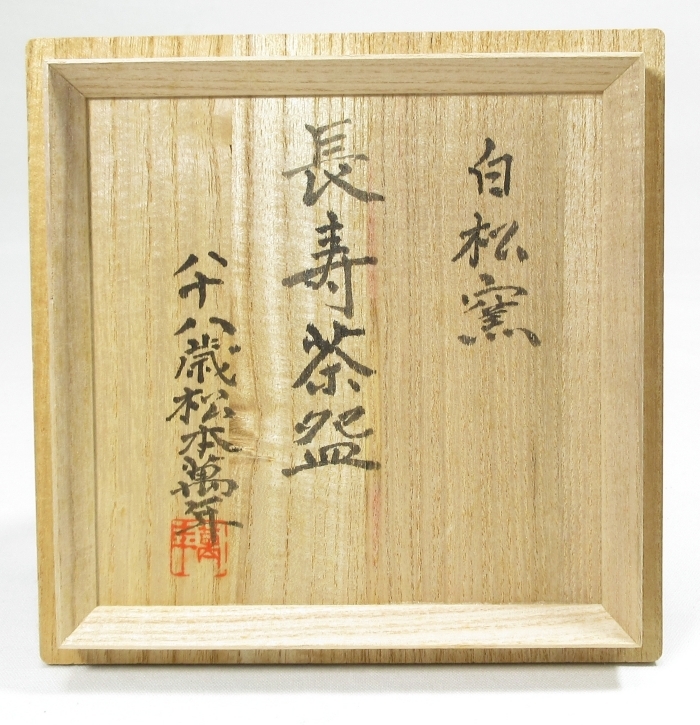 白松窯
長寿茶盌
八十八歳松本萬年
萬年